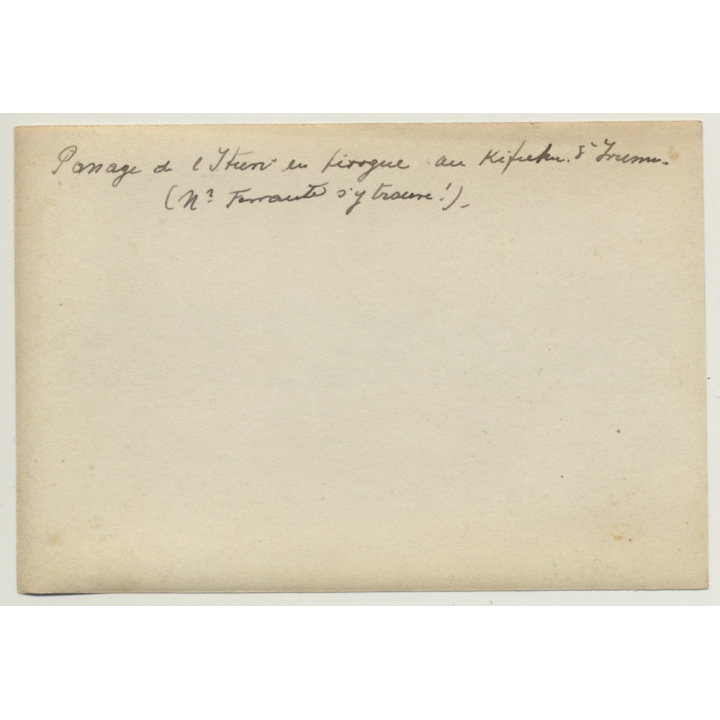 Passage de l'Ituri en pirogue au Kifuku. d' Irumu.
(Mr Ferrante s'y trouve!).